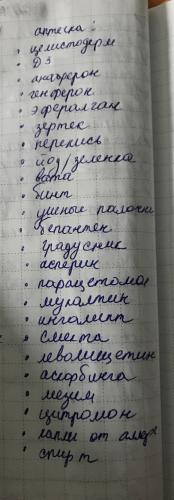 аптечка:
• целестодерм
• Д3
• анаферон
• генферон
• эфералган
• зертек
• перекись
• йод/зеленка
• вата
• бинт
• ушные палочки
• бепантек
• градусник
• асперин
• парацетомол
• мукалтин
• ингалипт
• смекта
• левомицетин
• аскорбинга
• мезим
• цитромон
• капли от
• спирт